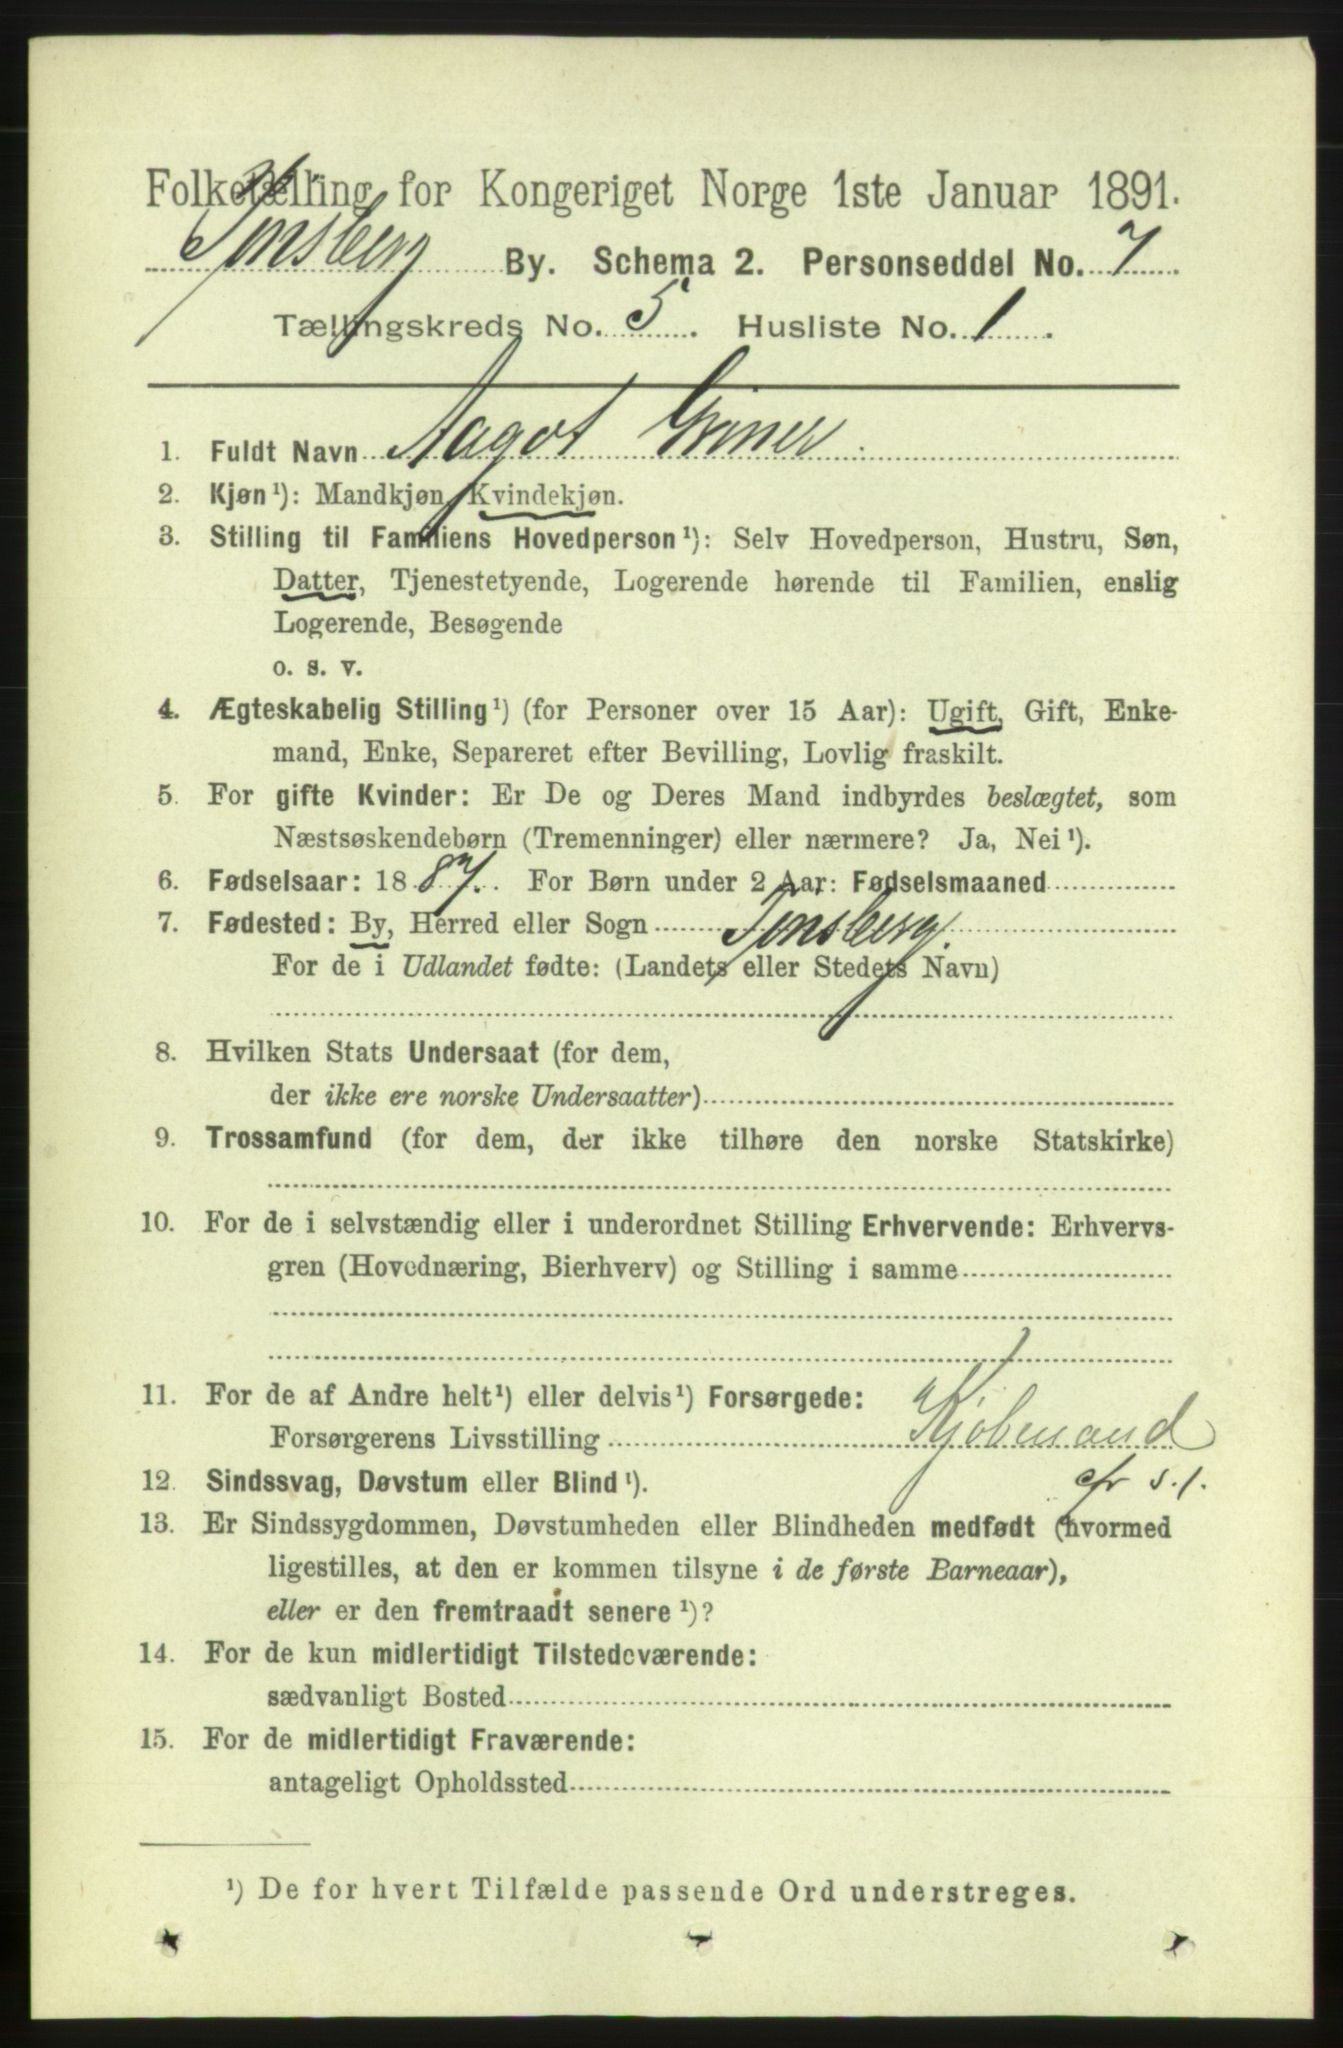 Folketælling for Kongeriget Norge 1ste Januar 1891.
Tønsberg By. Schema 2. Personseddel No. 7
Tællingskreds No. 5. Husliste No. 1.
1. Fuldt Navn Aagot Griner
2. Kjøn¹): Mandkjøn, Kvindekjøn.
3. Stilling til Familiens Hovedperson¹): Selv Hovedperson, Hustru, Søn,
Datter, Tjenestetyende, Logerende hørende til Familien, enslig
Logerende, Besøgende
o. s. v.
4. Ægteskabelig Stilling¹) (for Personer over 15 Aar): Ugift, Gift, Enke-
mand, Enke, Separeret efter Bevilling, Lovlig fraskilt.
5. For gifte Kvinder: Er De og Deres Mand indbyrdes beslægtet, som
Næstsøskendebørn (Tremenninger) eller nærmere? Ja, Nei¹).
6. Fødselsaar: 1887. For Børn under 2 Aar: Fødselsmaaned
7. Fødested: By, Herred eller Sogn Tønsberg.
For de i Udlandet fødte: (Landets eller Stedets Navn)
8. Hvilken Stats Undersaat (for dem,
der ikke ere norske Undersaatter)
9. Trossamfund (for dem, der ikke tilhøre den norske Statskirke)
10. For de i selvstændig eller i underordnet Stilling Erhvervende: Erhvervs-
gren (Hovednæring, Bierhverv) og Stilling i samme
11. For de af Andre helt¹) eller delvis¹) Forsørgede:
Forsørgerens Livsstilling Kjøbmand
cfr s. 1.
12. Sindssvag, Døvstum eller Blind¹).
13. Er Sindssygdommen, Døvstumheden eller Blindheden medfødt (hvormed
ligestilles, at den er kommen tilsyne i de første Barneaar),
eller er den fremtraadt senere¹)?
14. For de kun midlertidigt Tilstedeværende:
sædvanligt Bosted
15. For de midlertidigt Fraværende:
antageligt Opholdssted
¹) De for hvert Tilfælde passende Ord understreges.